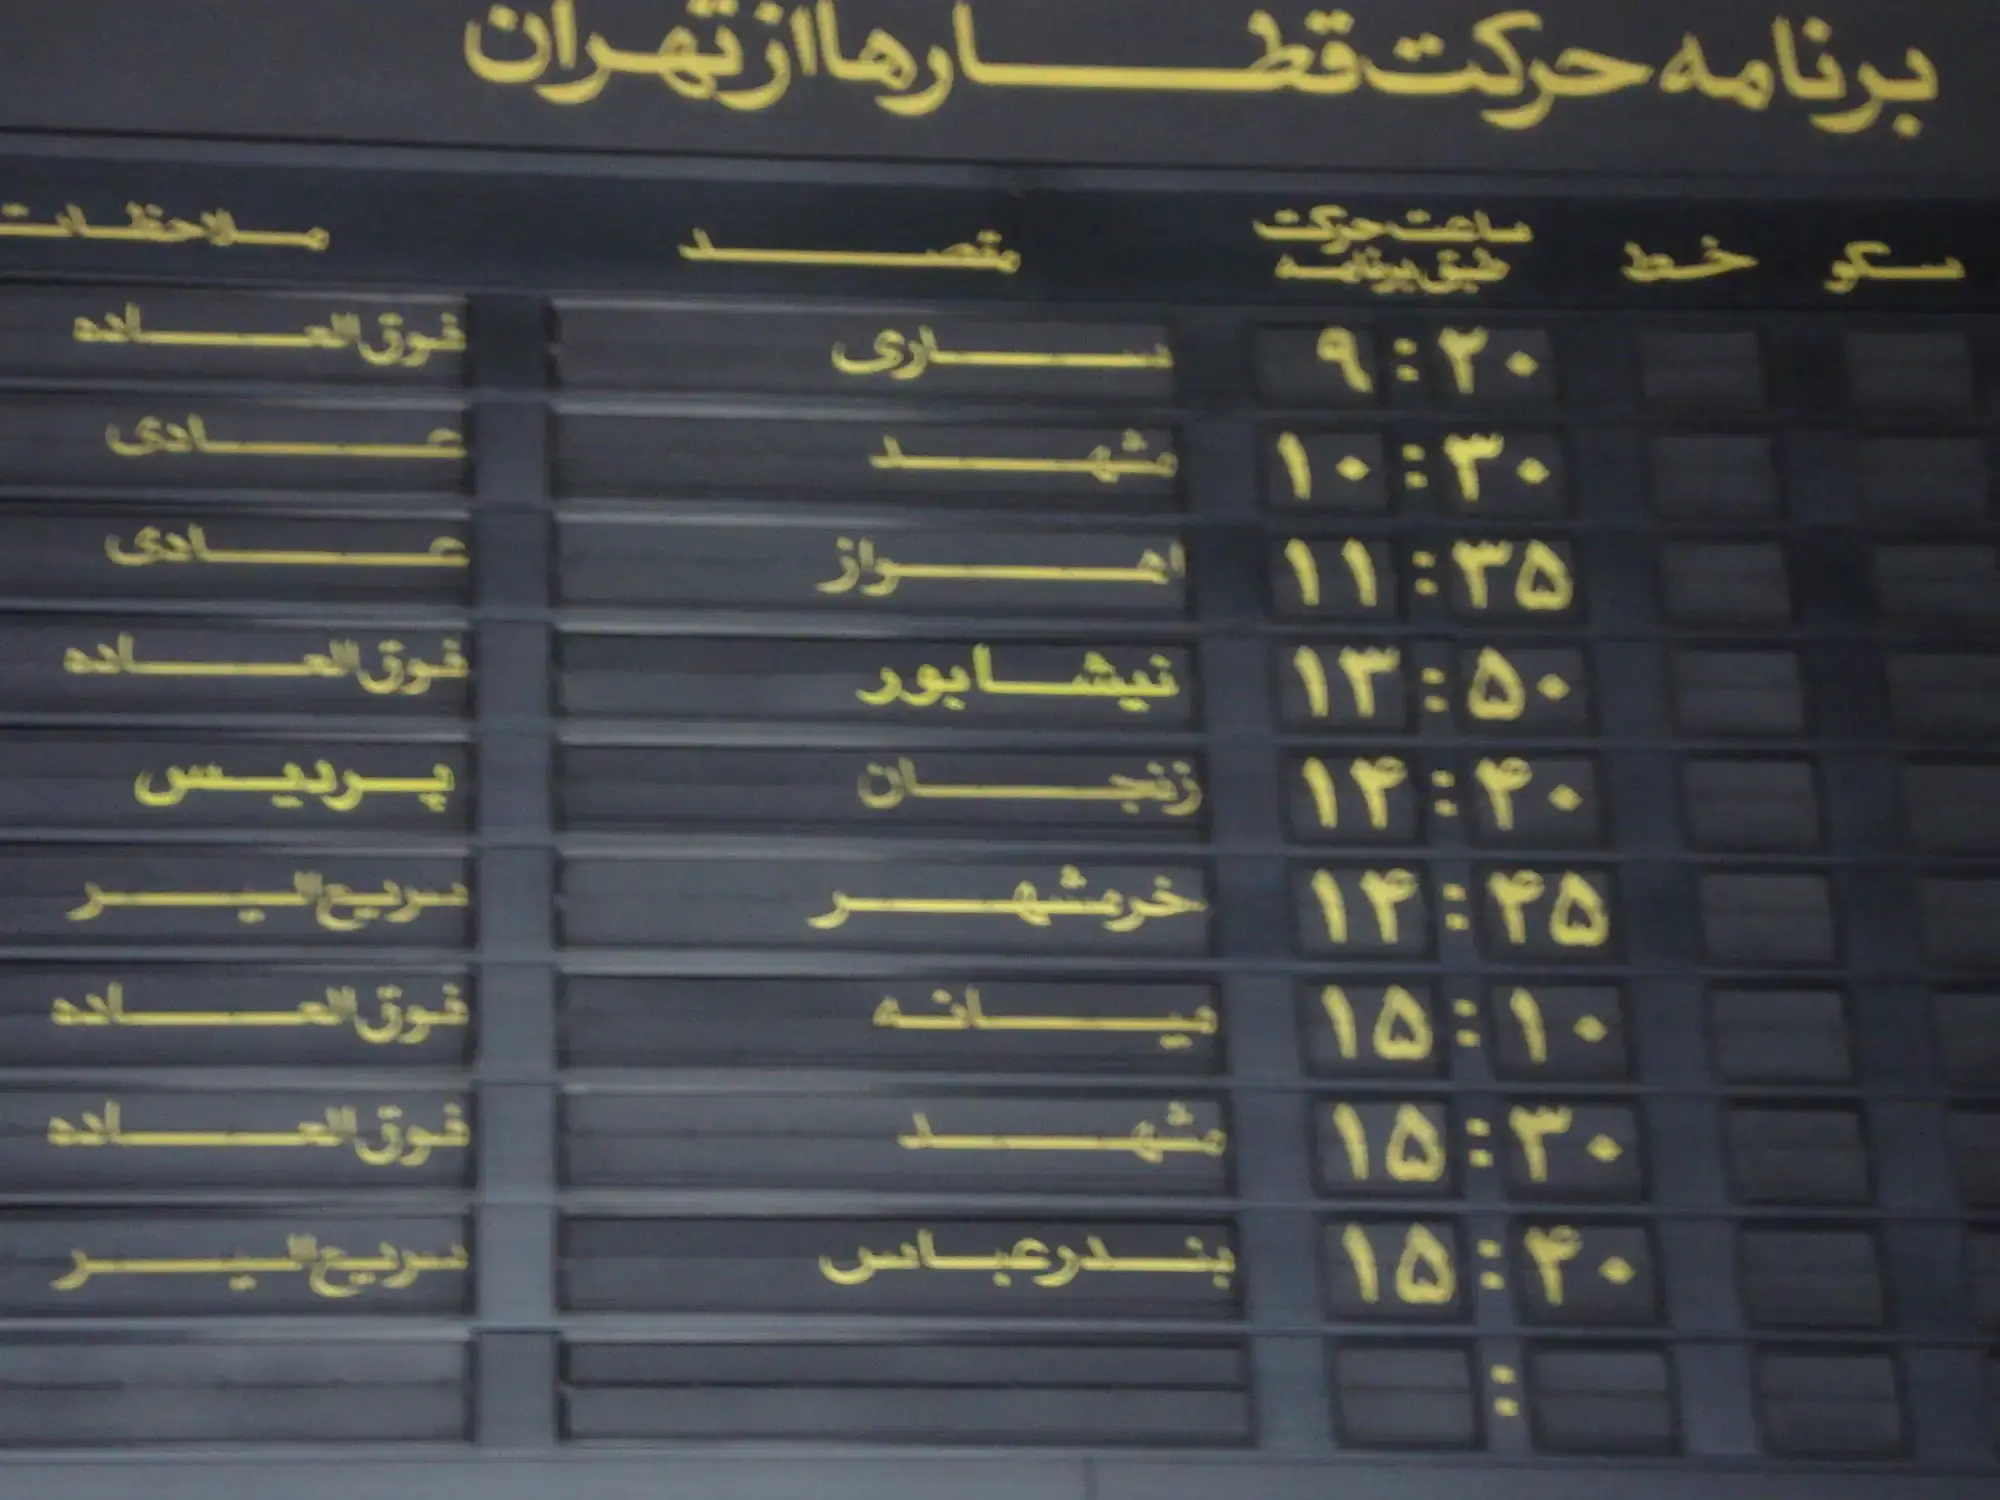 برنامه حرکت قطارها از تهران
سکو خط ساعت حرکت طبق برنامه مقصد ملاحظات
۹:۲۰ ساری فوق العاده
۱۰:۳۰ مشهد عادی
۱۱:۳۵ اهواز عادی
۱۳:۵۰ نیشابور فوق العاده
۱۴:۴۰ زنجان پردیس
۱۴:۴۵ خرمشهر سریع السیر
۱۵:۱۰ میانه فوق العاده
۱۵:۳۰ مشهد فوق العاده
۱۵:۴۰ بندرعباس سریع السیر
: